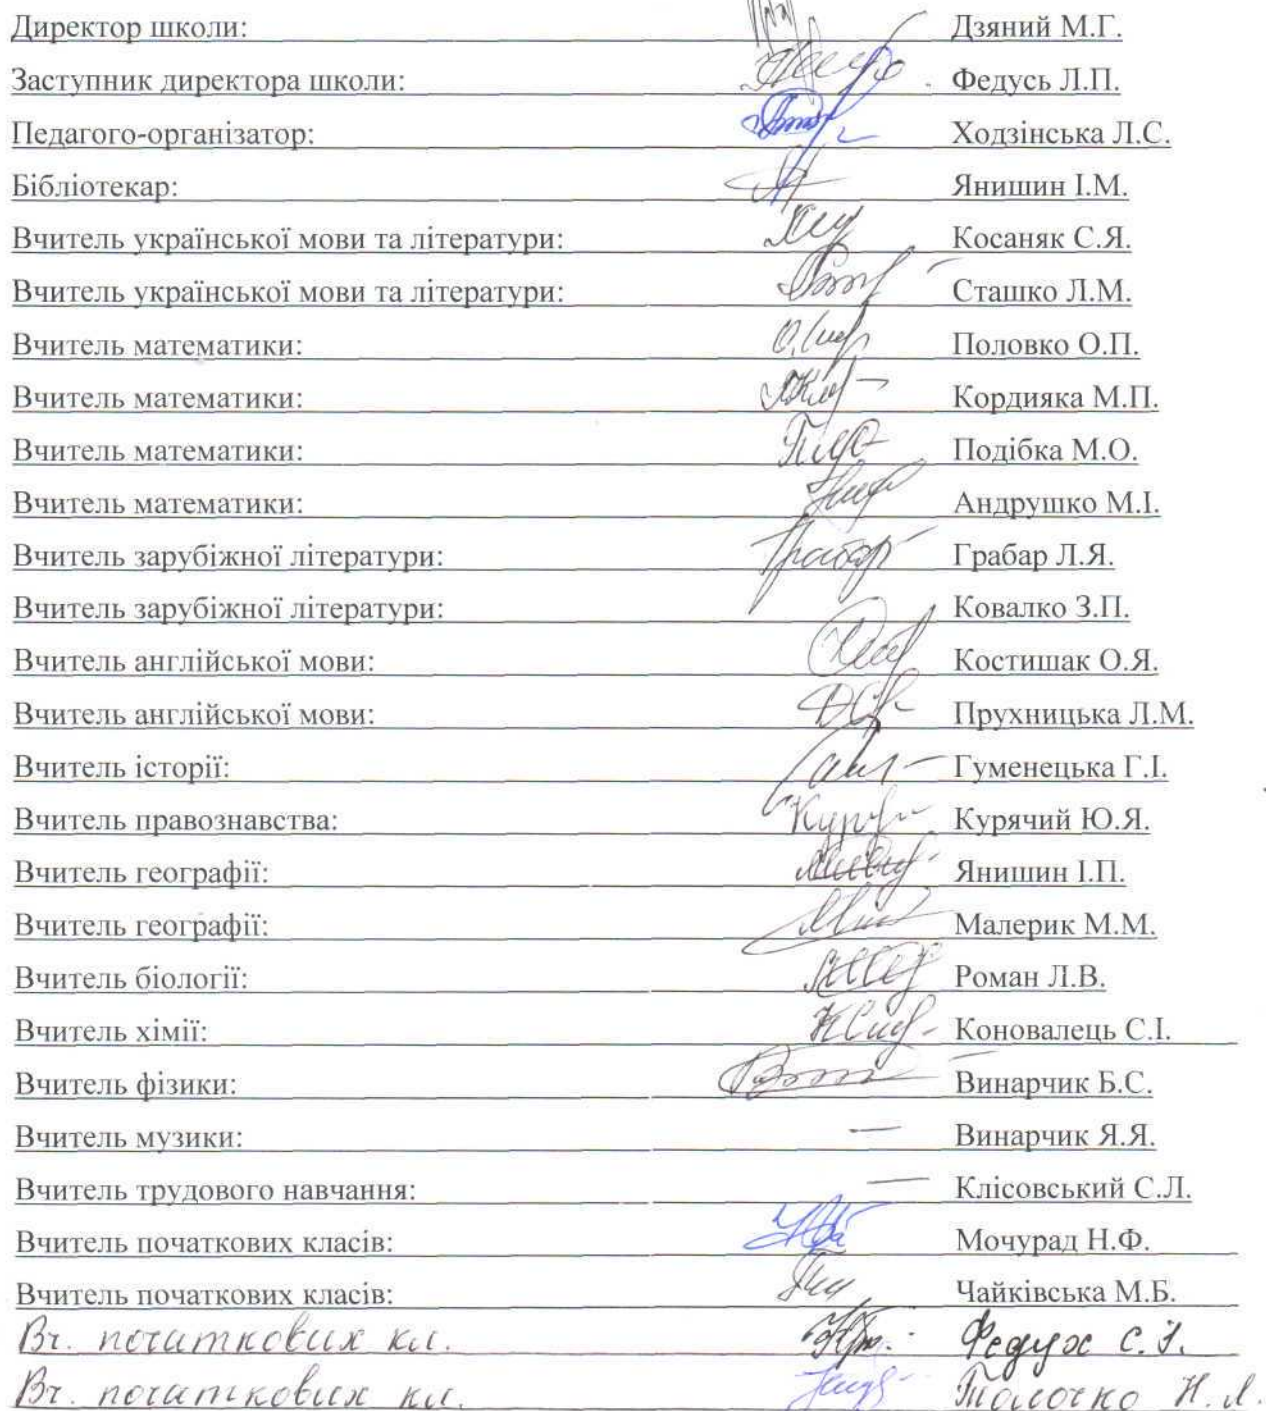 Директор школи: Дзяний М.Г.
Заступник директора школи: Федусь Л.П.
Педагого-організатор: Ходзінська Л.С.
Бібліотекар: Янишин І.М.
Вчитель української мови та літератури: Косаняк С.Я.
Вчитель української мови та літератури: Сташко Л.М.
Вчитель математики: Половко О.П.
Вчитель математики: Кордияка М.П.
Вчитель математики: Подібка М.О.
Вчитель математики: Андрушко М.І.
Вчитель зарубіжної літератури: Грабар Л.Я.
Вчитель зарубіжної літератури: Ковалко З.П.
Вчитель англійської мови: Костишак О.Я.
Вчитель англійської мови: Прухницька Л.М.
Вчитель історії: Гуменецька Г.І.
Вчитель правознавства: Курячий Ю.Я.
Вчитель географії: Янишин І.П.
Вчитель географії: Малерик М.М.
Вчитель біології: Роман Л.В.
Вчитель хімії: Коновалець С.І.
Вчитель фізики: Винарчик Б.С.
Вчитель музики: — Винарчик Я.Я.
Вчитель трудового навчання: — Клісовський С.Л.
Вчитель початкових класів: Мочурад Н.Ф.
Вчитель початкових класів: Чайківська М.Б.
Вч. початкових кл. Федух С.
Вч. початкових кл. Толочко Н.Л.